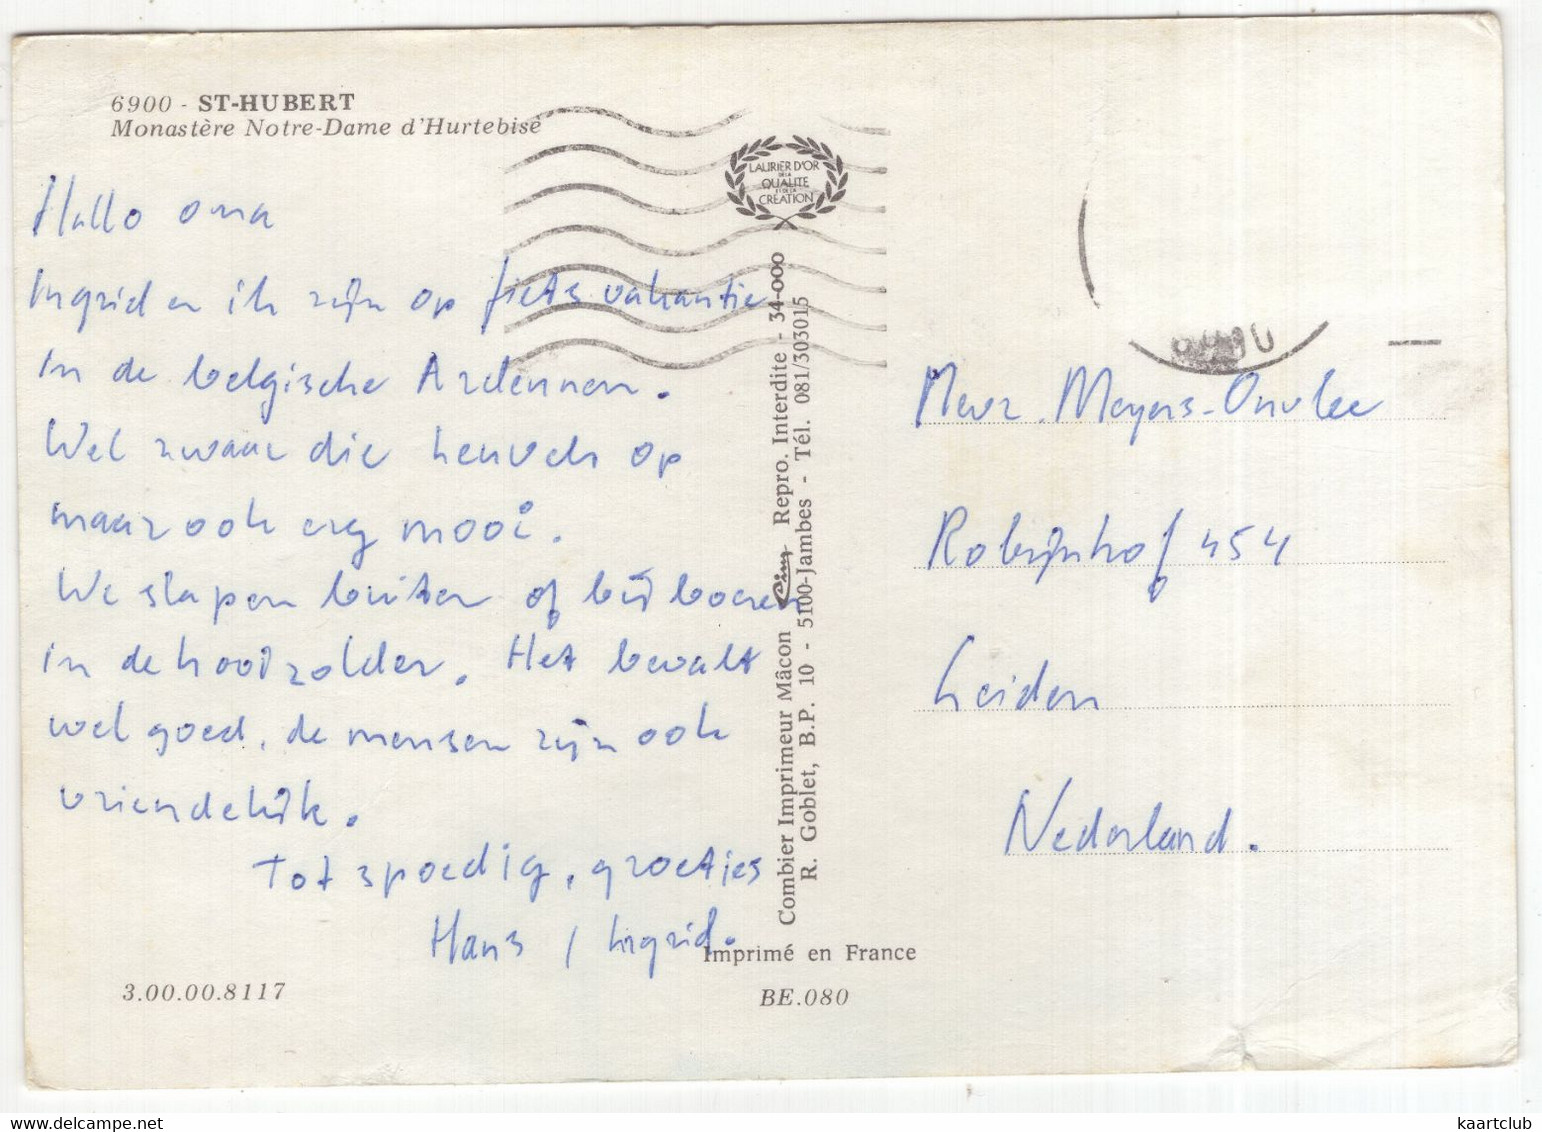 6900 - ST-HUBERT
Monastère Notre-Dame d'Hurtebise
Hallo oma
Ingrid en ik zijn op fiets vakantie
in de belgische Ardennen.
Wel zwaar die heuvels op
maar ook erg mooi.
We slapen buiten of bij boeren
in de hooizolder. Het bevalt
wel goed, de mensen zijn ook
vriendelijk.
Tot spoedig, groetjes
Hans / Ingrid.
3.00.00.8117
LAURIER D'OR
DE LA
QUALITE
ET DE LA
CREATION
Combier Imprimeur Mâcon Cim Repro. Interdite - 34-000
R. Goblet, B.P. 10 - 5100-Jambes - Tél. 081/303015
Imprimé en France
BE.080
Mevr. Meyers-Onvlee
Robijnhof 454
Leiden
Nederland.
kaartclub